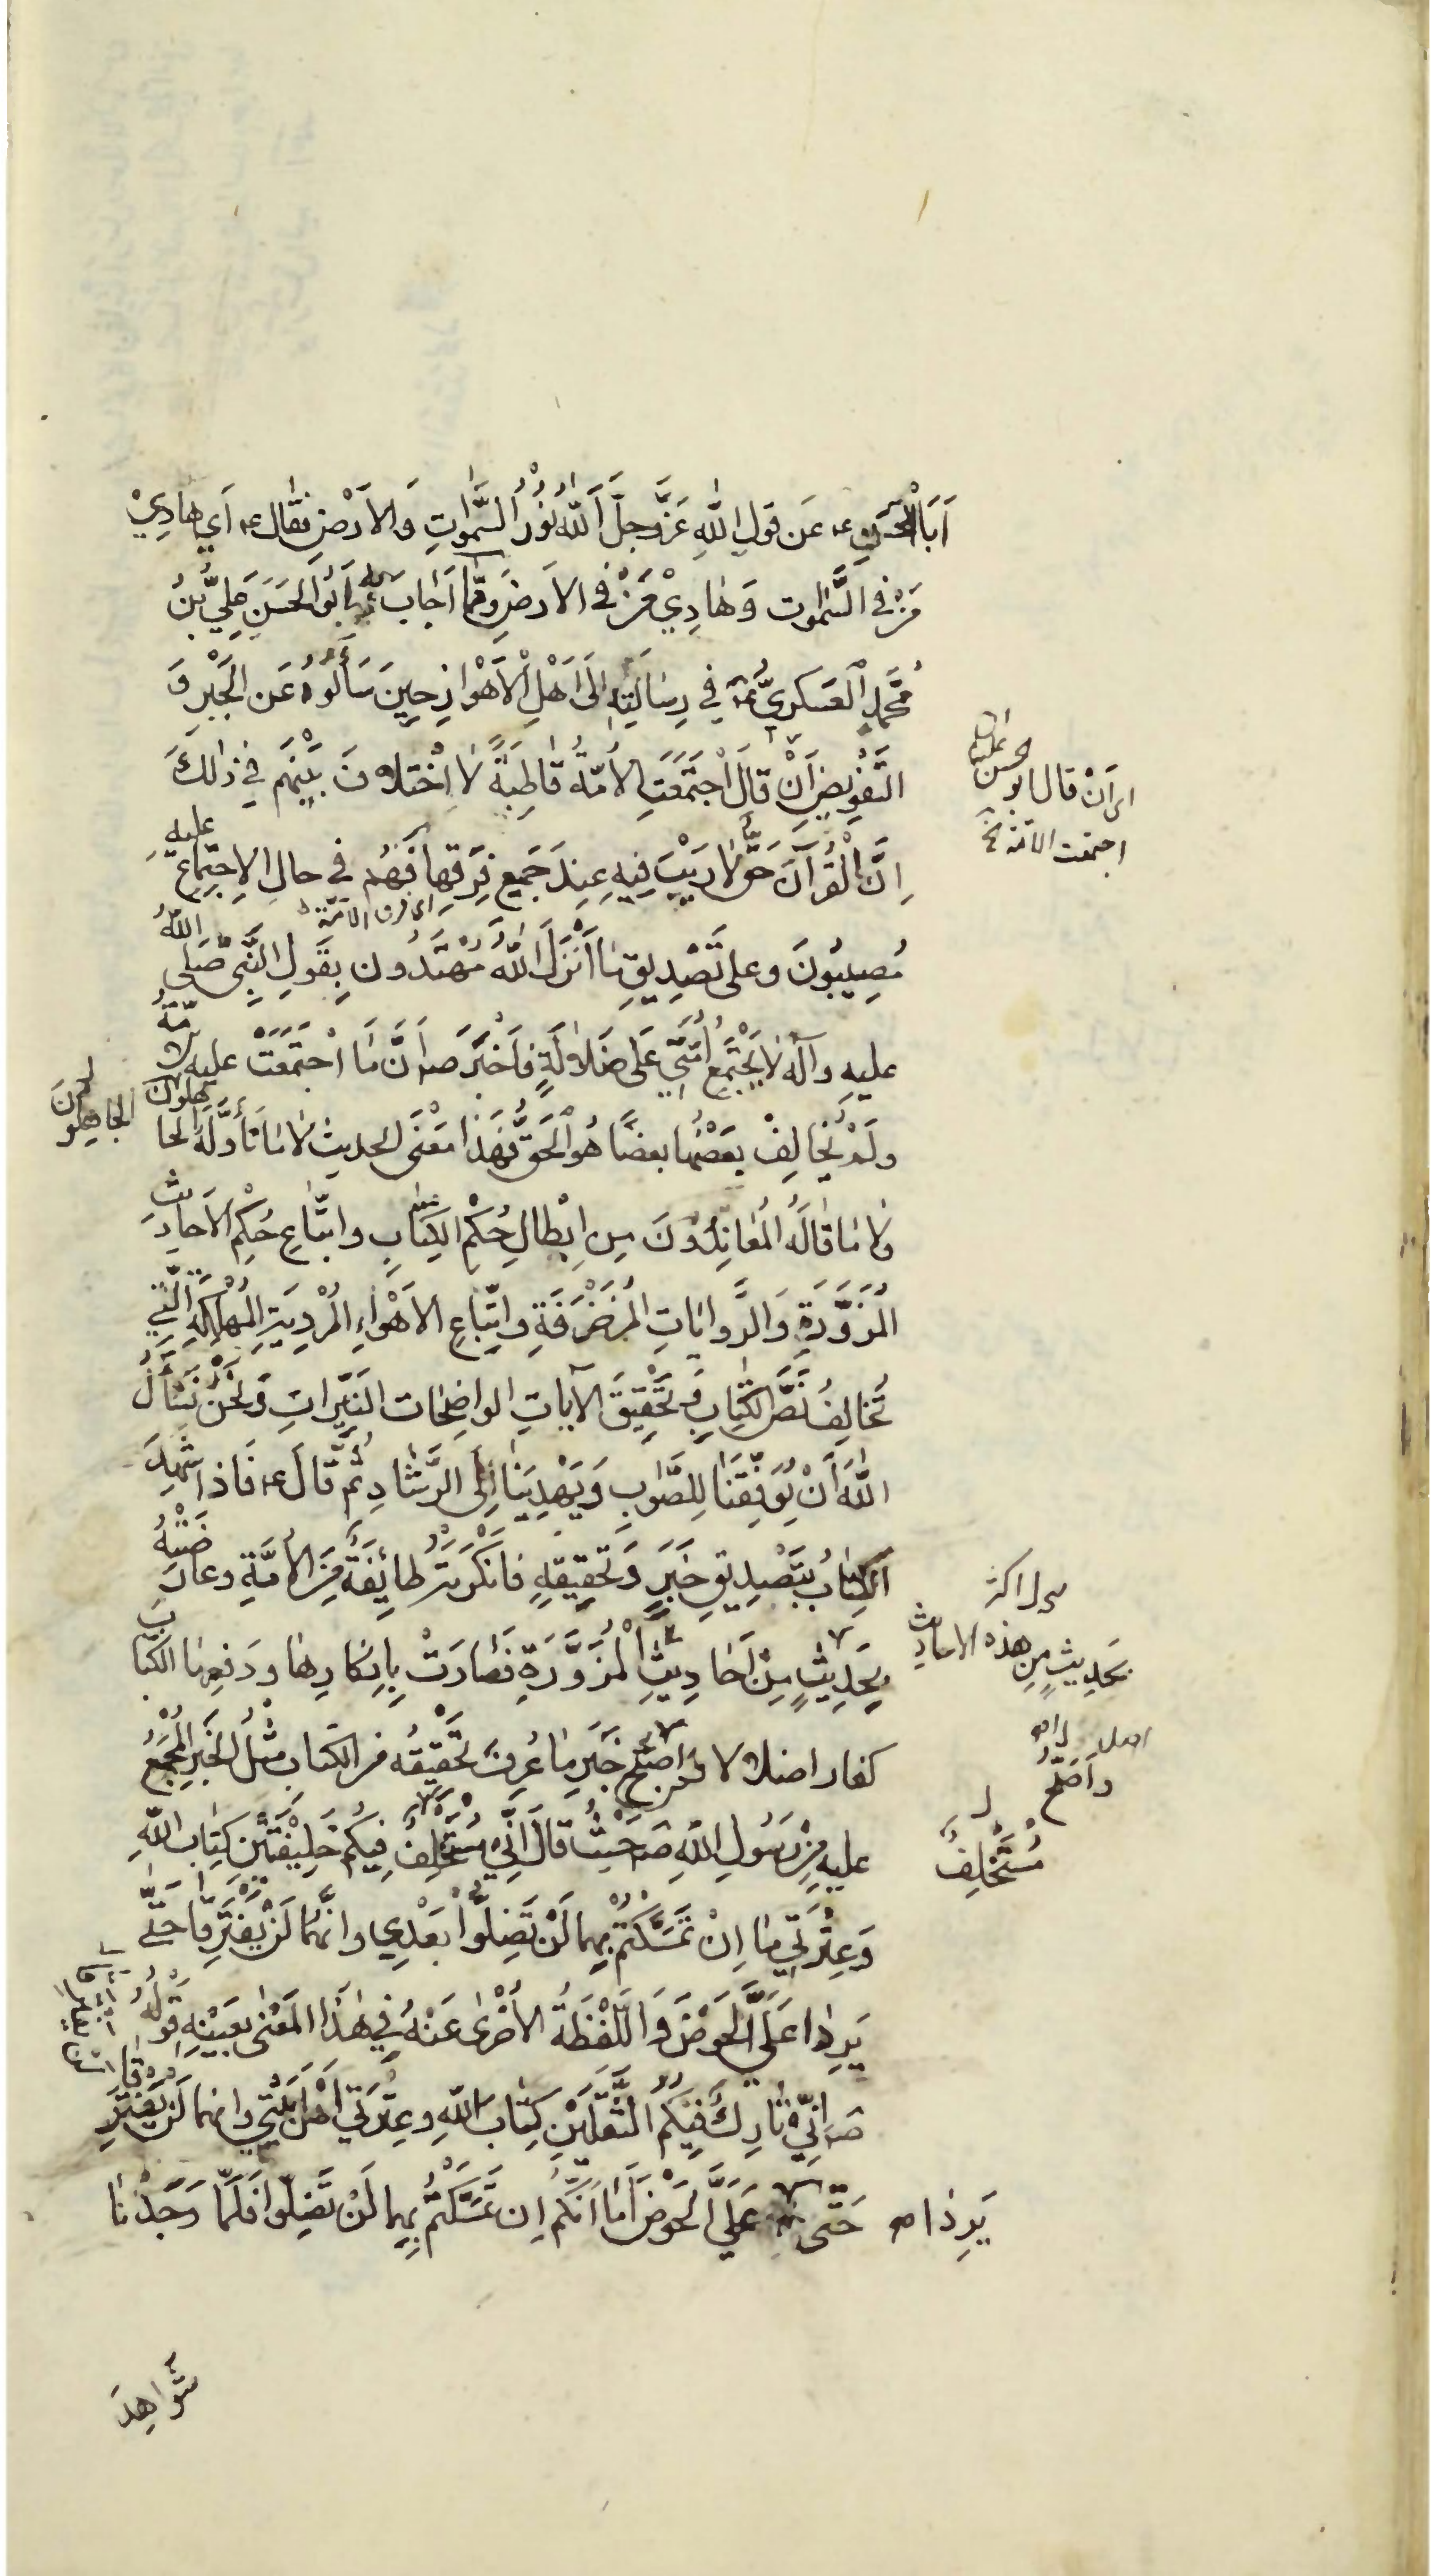 اَبَا الْحَسَنِ ع عَن قَولِ اللّٰهِ عَزَّوجلَّ اَللّٰهُ نُوْرُ السَّمٰوٰتِ وَالاَرْضِ فقال ع اَي هادِيْ
مَنْ فى السَّمٰوٰت وَهٰادِيْ مَنْ فى الاَرضِ وَمِمّٰا اَجٰابَ بِهِ اَبُوالحَسَنِ عَلِيُّ بْنُ
مُحَمَّدٍ الْعَسكَرِيُّ ع في رِسٰالَتِهِ اِلىٰ اَهْلِ الْاَهْوازِ حِينَ سَأَلُوهُ عَن الجَبْرِ وَ
التَّفوِيضِ اَنْ قٰالَ اجْتَمَعَتِ الاُمَّةُ قٰاطِبَةً لاٰ اخْتِلافَ بَيْنَهُم في ذٰلِكَ
اَنْ قال ابو الحسن
اجتمعت الامّة خ
اِنَّ الْقُرْآنَ حَقٌّ لاٰ رَيْبَ فِيهِ عِندَ جَمِيعِ فِرَقِها فَهُم في حالِ الاِجتِماعِ عليه
اى فرق الامّة
مُصِيبُونَ وعلى تَصْدِيقِ مٰا اَنْزَلَ اللّٰهُ مُهْتَدُونَ بِقَولِ النَّبِي صَلى اللّٰهُ
عليهِ وآلِه لاٰ يَجْتَمِعُ اُمَّتِي عَلى ضَلاٰلَةٍ فاَخْبَرَ ص اَنَّ مٰا اجْتَمَعَتْ عليه الاُمّةُ
ولَمْ يُخٰالِفْ بعضُها بعضًا هُو الْحَقُّ فهَذا مَعْنَى الحديث لاٰ مٰا تَأَوَّلَهُ الجاهلون
الجاهِلونَ
ولاٰ مٰا قٰالَهُ المُعٰانِدُونَ مِن اِبْطالِ حُكْمِ الكِتٰابِ واتّبٰاعِ حُكمِ الاَحادِيثِ
المُزَوَّرَةِ وَالرَّوايٰاتِ المُزَخْرَفَةِ واتِّباعِ الاَهْواءِ المُرْدِيَةِ المُهْلِكَةِ الَّتي
تُخالِفُ نَصَّ الكِتٰابِ وَ تَحْقِيقَ الآياتِ الواضِحٰات النَيِّراتِ وَ نَحْنُ نَسْأَلُ
اللّٰهَ اَنْ يُوَفِّقَنٰا لِلصَّوٰابِ وَ يَهْدِيَنٰا اِلىَ الرَّشٰادِ ثُمَّ قٰالَ ع فَاِذا شَهِدَ
الكِتٰابُ بِتَصْدِيقِ خَبَرٍ وَ تَحقِيقِهِ فاَنْكَرَتْهُ طائِفَةٌ مِنَ الاُمَّةِ وعارَضَتْهُ
بِحَدِيثٍ مِنْ اَحٰادِيثِ الْمُزَوَّرَةِ فَصٰارَتْ بِاِنكارِها ودَفعِها الكتاب
بحديثٍ من هذه الاحاديث
كفارا ضلالا واصَحُّ خَبَرٍ مٰا عُرِفَ تَحْقِيقُه من الكتاب مثْلُ الخَبَرِ المُجْمَعُ
واَصَحُّ
عليه مِنْ رَسُولِ اللّٰهِ ص حَيْثُ قٰالَ اِنِّي مُسْتَخلِفٌ فِيكُم خَلِيْفَتَيْن كِتابَ اللّٰهِ
مُسْتَخْلِفٌ
وَعِتْرَتِي مٰا اِنْ تَمَسَّكْتُمْ بِهما لَنْ تَضِلُّوا بَعْدِي وانَّهما لَنْ يَفْتَرِقٰا حَتّٰى
يَرِدا عَلَيَّ الْحَوْضَ وَاللَّفْظَةُ الاُخْرى عَنْهُ في هٰذَا المَعْنى بعَيْنِه قَوْلُهُ
ص اِنّي تٰارِكٌ فِيكُمُ الثَّقَلَيْنِ كِتٰابَ اللّٰهِ وعِتْرَتي اَهْلَ بَيْتِي وانهما لَنْ يَفْتَرِقا
يَرِدٰا ص حَتّى عَلَيَّ الحَوضَ اَمٰا اَنَّكُم اِن تَمَسَّكْتُمْ بِهِما لَنْ تَضِلّوا فَلَمّا وَجَدْنٰا
شَواهِدَ